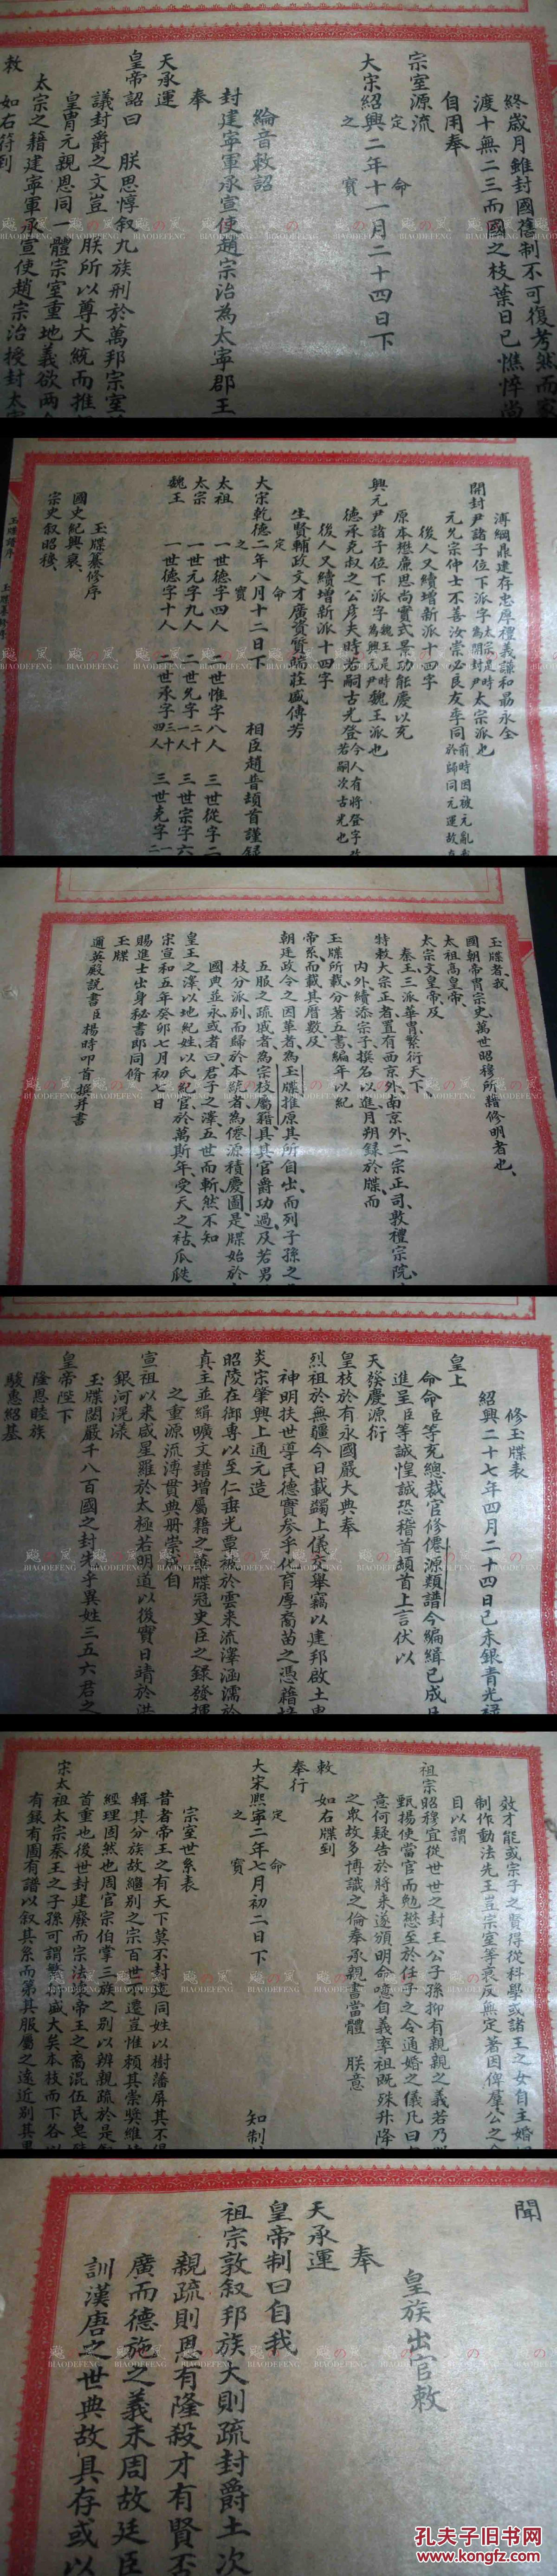 終歲月雖封國舊制不可復考然而
渡十無二三而國之枝葉日已憔悴尚
自用奉
宗室源流
定 命
大宋紹興二年十一月二十四日下
之 寶
綸音敕詔
封建寧軍承宣使趙宗治為太寧郡王
奉
天承運
皇帝詔曰 朕思惇叙九族刑於萬邦宗室
議封爵之文豈 朕所以尊大統而推
皇胄元親恩同一體宗室重地義欲兩
太宗之籍建寧軍承宣使趙宗治授封太
敕 如右符到
溥綱鼎建存忠厚禮義謙和勗永全
開封尹諸子位下派字太宗是時為開封尹太宗派也
元允宗仲士不善汝崇必良友季同
後人又續增新派十四字
原本懋廉思尚實式景功能慶以克
興元尹諸子位下派字魏王是時為興元尹魏王派也
德承克叔之公彥夫時若嗣古光登
後人又續增新派十四字
生賢輔政文才廣資質端莊盛傳芳
定 命
大宋乾德二年八月十二日下 相臣趙普頓首謹録
之 寶
太祖 一世德字四人 二世惟字八人 三世從字二
太宗 一世元字九人 二世允字二十一人 三世宗字六
魏王 一世德字十人 二世承字三十四人 三世克字一
玉牒纂修序
國史紀興衰、
宗史叙昭穆、
玉牒者、我
國朝帝胄宗史、萬世昭穆所藉修明者也、
太祖高皇帝、
太宗文皇帝及
秦王、三派華胄繁衍天下、
特敕大宗正者置有西京外、南京外、二宗正司、敦禮宗院、
內外續添宗子撰名以進月朔録於牒、而
玉牒所載、分著五書、編年以紀
帝系、而載其曆數及
朝廷政令之因革者、為玉牒推原其所自出、而列子孫之
五服之疏戚者、為宗枝屬籍具其官爵功過、及若男
枝分派別而歸於本統者、為僊源積慶圖、是牒始於
國典並永或者曰君子之澤、五世而斬、然不知
皇王之澤、以地紀姓、以氏紀官、於萬斯年、受天之祜、瓜瓞
宋宣和五年癸卯七月初七日
賜進士出身秘書郎同脩
玉牒
邇英殿說書臣楊時叩首撰并書
修玉牒表
紹興二十七年四月二十四日己未銀青光祿
皇上
命命臣等充總裁官修僊源類譜今編緝已成
進呈臣等誠惶誠恐稽首頓首上言伏以
天發慶源衍
皇枝於有永國嚴大典奉
烈祖於無疆今日載蠲上儀交舉竊以建邦啟土
神明扶世導民德實參乎化育厚裔苗之憑藉
炎宗肇興上通元造
昭陵在御專以至仁垂光覃被於雲來流澤涵濡於
真主並緝曠文譜增屬籍之華牒冠史臣之録發揮
之重源流溥貫典冊崇成自
宣祖以來咸星羅於太極若明道以後實日靖於洪
銀河滉漾
玉牒閎嚴千八百國之封半乎異姓三五六君之
皇帝陛下
隆恩睦族
駿惠紹基
效才能或宗子之賢得從科舉或諸王之女自主婚
制作動法先王豈宗室等衰反無定著因俾羣公之
目以謂
祖宗昭穆宜從世世之封王公子孫抑有親親之義若乃
甄揚使當官而勉懋至於任子之令通婚之儀凡曰
意何疑告於將来遂頒明命噫自義率祖既殊升降
之眾故多博識之倫奉承親書當體 朕意
敕 如右牒到
奉行
定 命
大宋熙寧二年七月初二日下 知制
之 寶
宗室世系表
昔者帝王之有天下莫不封建同姓以樹藩屏其不
輯其分族故繼別之宗百世不遷豈惟賴其崇獎維
經理固然也周官宗伯掌三族之別以辨親疏於是
首重也後世封建廢而宗法壞帝王之裔混伍民皂
宋太祖太宗秦王之子孫可謂繁衍盛大矣本枝而下各
有録有圖有譜以叙其系而第其服屬之遠近別其
聞
皇族出官敕
奉
天承運
皇帝制曰自我
祖宗敦叙邦族大則疏封爵土次
親疏則恩有隆殺才有賢否
廣而德施之義未周故廷臣
訓漢唐之世典故具存或以
飚の冥
BIAODEFENG
孔夫子旧书网
www.kongfz.com